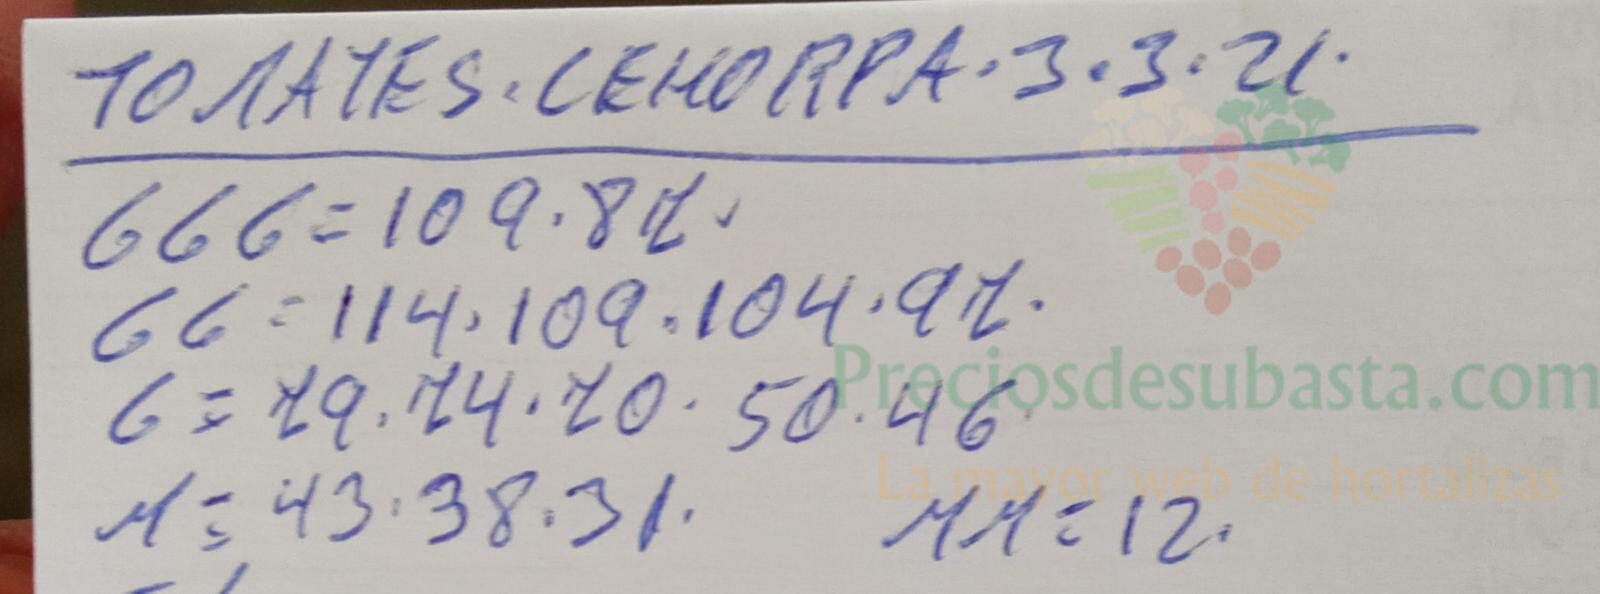 TOMATES. CEHORPA. 3.3.21.
GGG = 109.87.
GG = 114.109.104.97.
G = 79.74.70. 50.46.
M = 43.38.31. MM = 12.
Preciosdesubasta.com
La mayor web de hortalizas